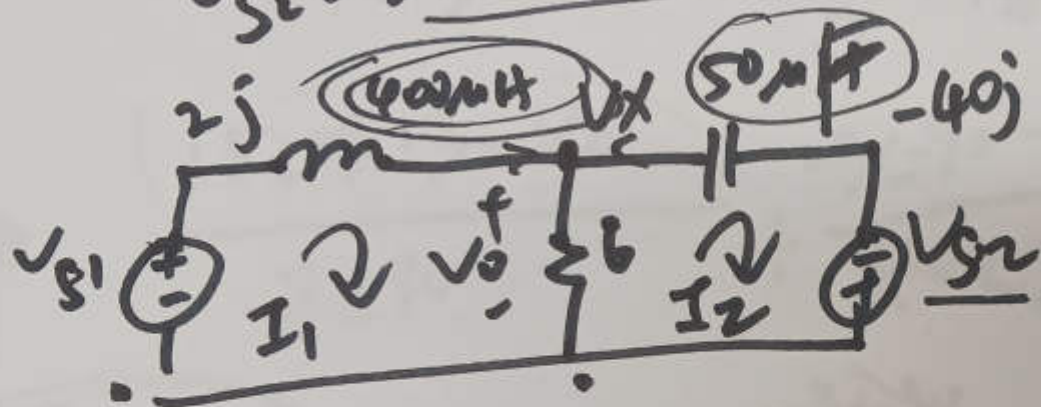 2j 400μH Vx 50μF -40j
Vs1 + - I1 + Vo - 6 I2 - + Vs2